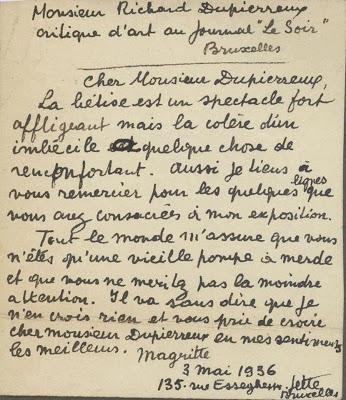 Monsieur Richard Dupierreux
critique d'art au Journal "Le Soir"
Bruxelles
Cher Monsieur Dupierreux,
La bêtise est un spectacle fort
affligeant mais la colère d'un
imbécile a quelque chose de
renconfortant. Aussi je tiens à
vous remercier pour les quelques lignes que
vous avez consacrées à mon exposition.
Tout le monde m'assure que vous
n'êtes qu'une vieille pompe à merde
et que vous ne meritez pas la moindre
attention. Il va sans dire que je
n'en crois rien et vous prie de croire
cher monsieur Dupierreux en mes sentiments
les meilleurs. Magritte
3 mai 1936
135. rue Esseghem. Jette
Bruxelles